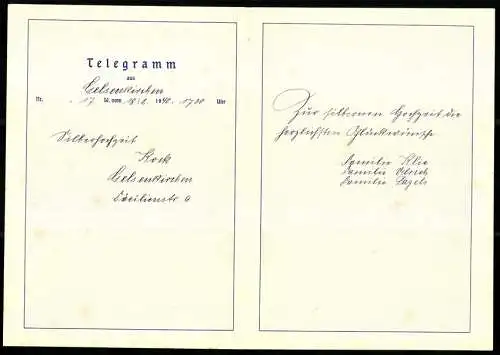 Telegramm
aus
Gelsenkirchen
Nr. 17 W. vom 18/2 1940 1700 Uhr
Silberhochzeit
Kock
Gelsenkirchen
Cäcilienstr 6
Zur silbernen Hochzeit die
herzlichsten Glückwünsche
Familie Klie
Familie Ulrich
Familie Sagels